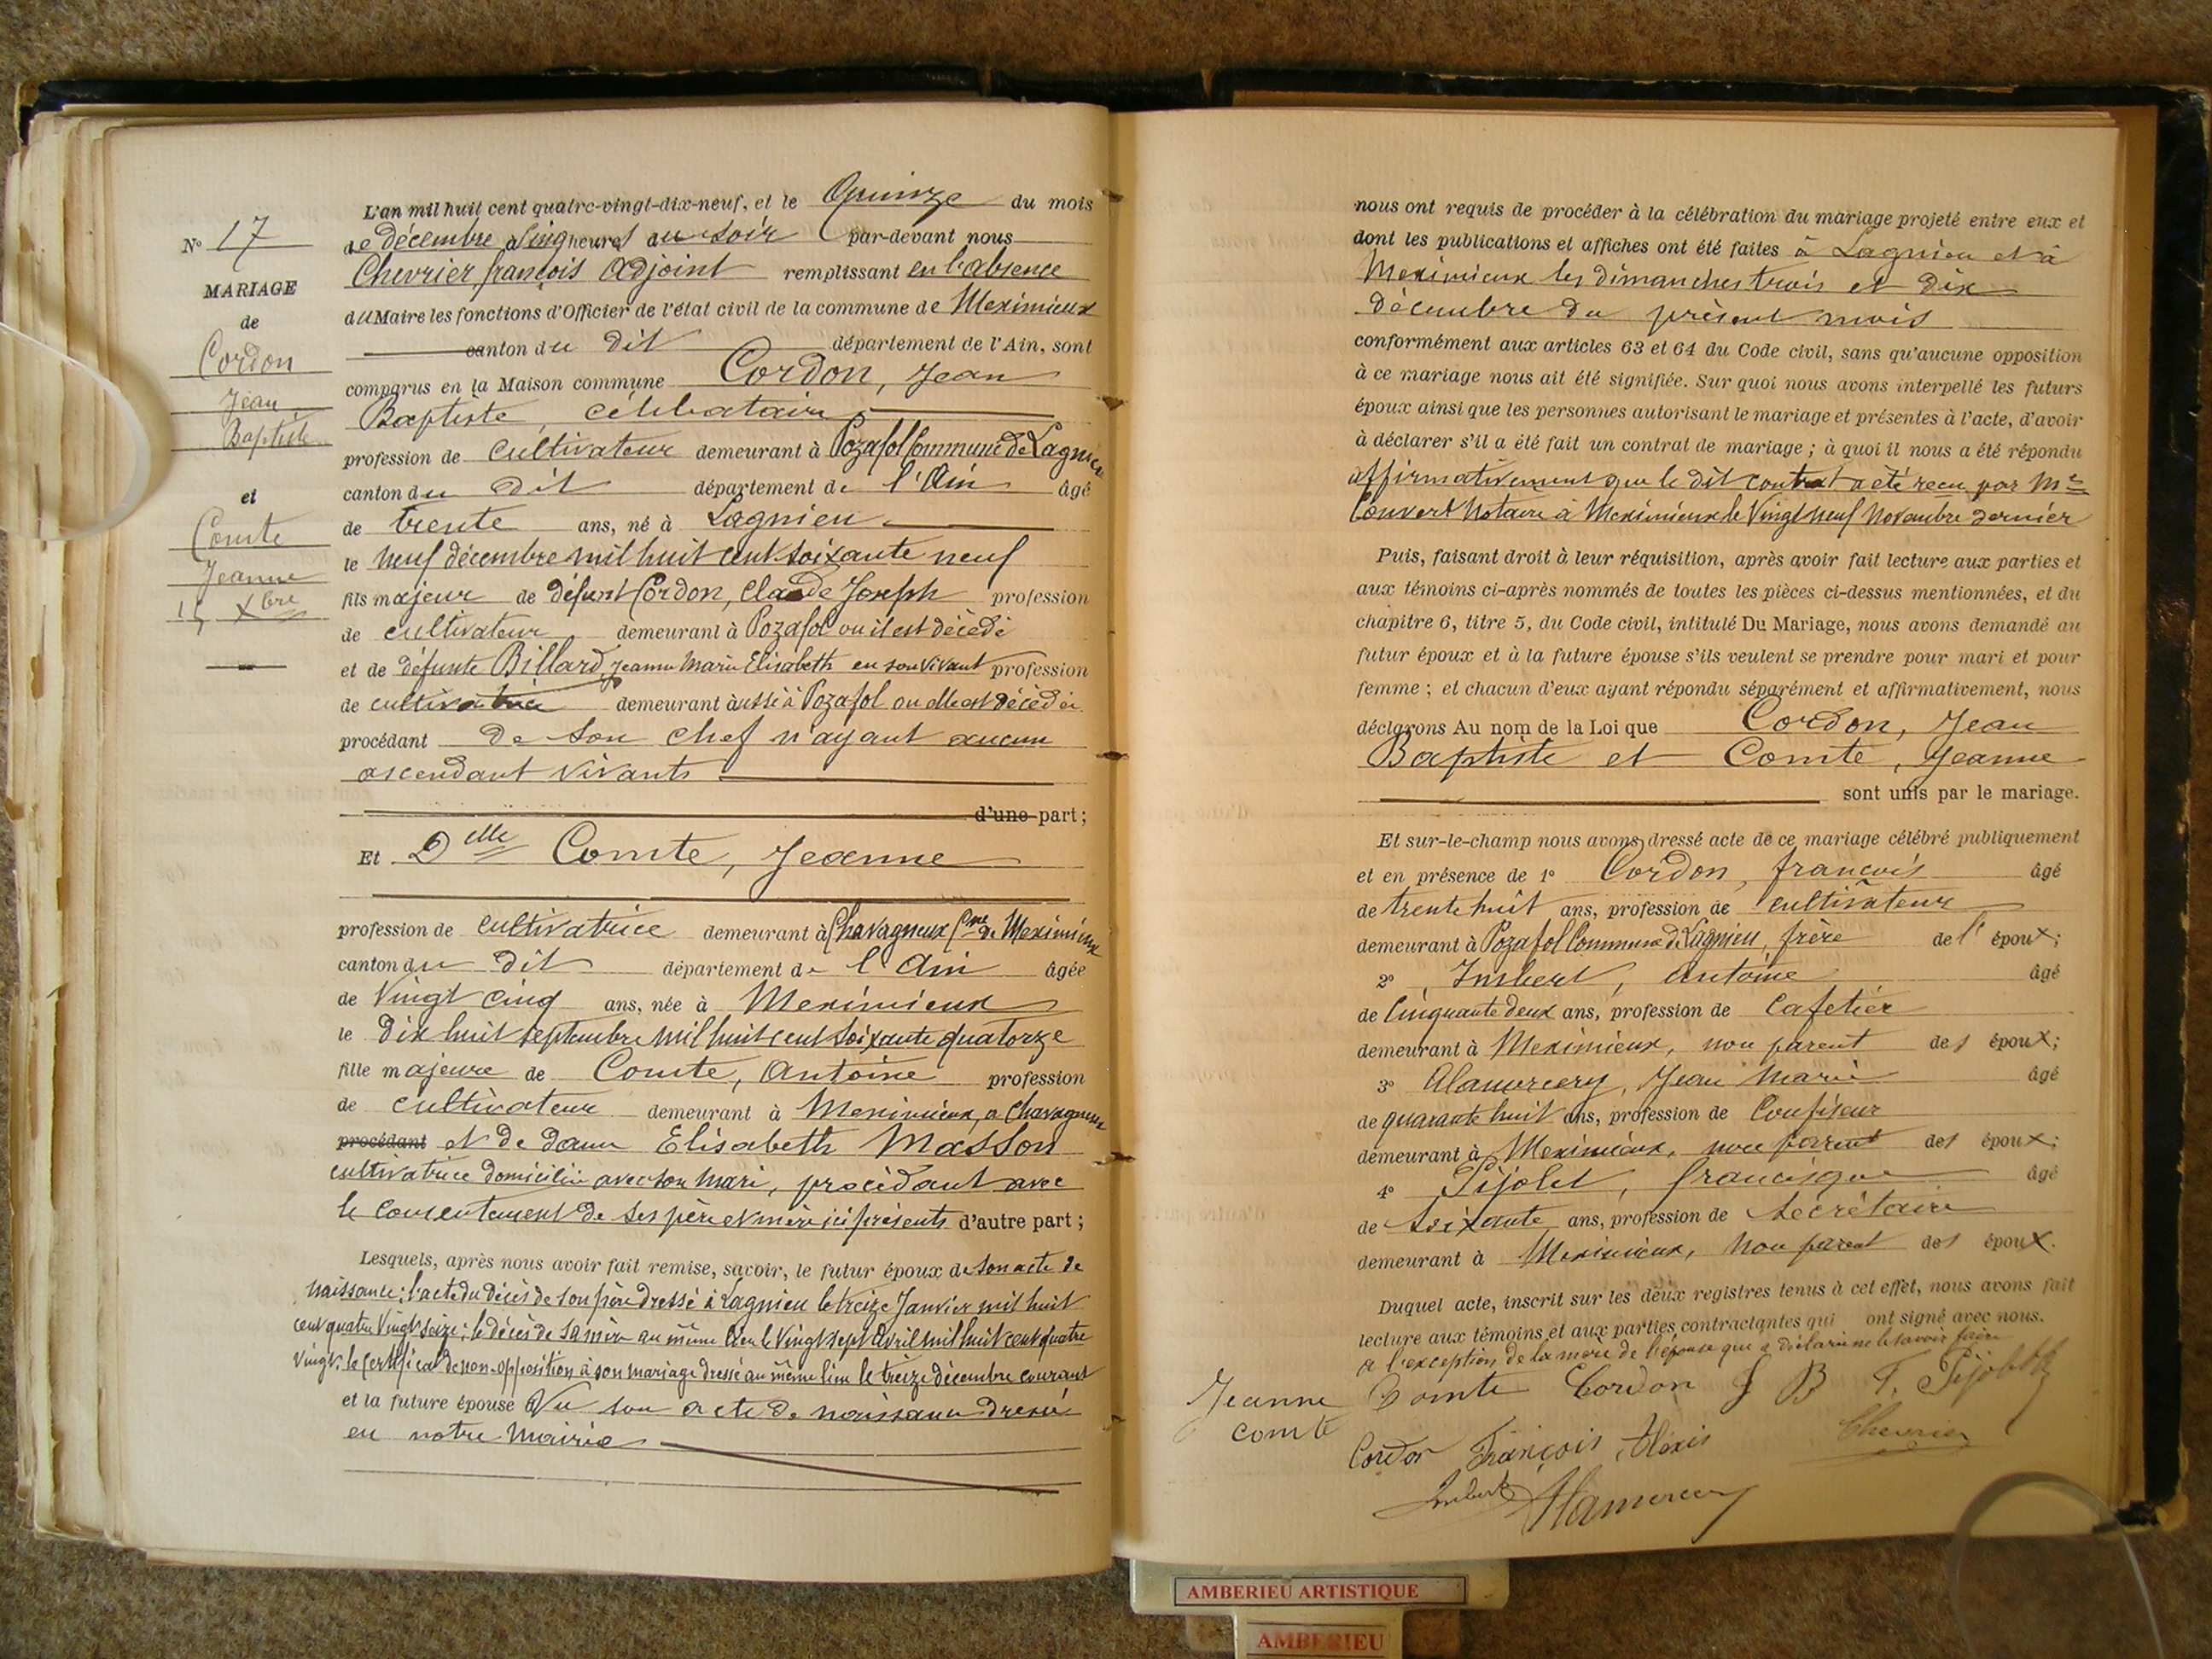 N° 17
MARIAGE
de
Cordon
Jean
Baptiste
et
Comte
Jeanne
15 Xbre
L'an mil huit cent quatre-vingt-dix-neuf, et le Quinze du mois
de décembre à Cinq heures du soir par-devant nous
Chevrier françois Adjoint remplissant en l'absence
du Maire les fonctions d'Officier de l'état civil de la commune de Meximieux
canton du dit département de l'Ain, sont
comparus en la Maison commune Cordon, Jean
Baptiste, célibataire,
profession de cultivateur demeurant à Pozafol Commune de Lagnieu
canton du dit département de l'Ain âgé
de trente ans, né à Lagnieu
le neuf décembre mil huit cent soixante neuf
fils majeur de défunt Cordon, Claude Joseph profession
de cultivateur demeurant à Pozafol ou il est décédé
et de défunte Billard, Jeanne Marie Elisabeth en son vivant profession
de cultivatrice demeurant aussi à Pozafol ou elle est décédée
procédant de son chef n'ayant aucun
ascendant vivants
d'une part;
Et Delle Comte, Jeanne
profession de cultivatrice demeurant à Chavagneux Cne de Meximieux
canton du dit département de l'Ain âgée
de Vingt cinq ans, née à Meximieux
le dix huit septembre mil huit cent soixante quatorze
fille majeure de Comte, Antoine profession
de cultivateur demeurant à Meximieux, a Chavagneux
procédant et de dame Elisabeth Masson
cultivatrice domiciliée avec son mari, procédant avec
le consentement de ses père et mère ici présents d'autre part;
Lesquels, après nous avoir fait remise, savoir, le futur époux de son acte de
naissance; l'acte du décès de son père dressé à Lagnieu le treize Janvier mil huit
cent quatre Vingt seize; le décès de sa mère au même lieu le Vingt sept Avril mil huit cent quatre
Vingt; le certificat de non-opposition à son mariage dressé au même lieu le treize décembre courant
et la future épouse Vu son acte de naissance dressé
en notre Mairie
nous ont requis de procéder à la célébration du mariage projeté entre eux et
dont les publications et affiches ont été faites à Lagnieu et à
Meximieux les dimanches trois et dix
décembre du présent mois
conformément aux articles 63 et 64 du Code civil, sans qu'aucune opposition
à ce mariage nous ait été signifiée. Sur quoi nous avons interpellé les futurs
époux ainsi que les personnes autorisant le mariage et présentes à l'acte, d'avoir
à déclarer s'il a été fait un contrat de mariage; à quoi il nous a été répondu
affirmativement que le dit contrat a été reçu par Me
Convert Notaire à Meximieux le Vingt neuf Novembre dernier
Puis, faisant droit à leur réquisition, après avoir fait lecture aux parties et
aux témoins ci-après nommés de toutes les pièces ci-dessus mentionnées, et du
chapitre 6, titre 5, du Code civil, intitulé Du Mariage, nous avons demandé au
futur époux et à la future épouse s'ils veulent se prendre pour mari et pour
femme; et chacun d'eux ayant répondu séparément et affirmativement, nous
déclarons Au nom de la Loi que Cordon, Jean
Baptiste et Comte, Jeanne
sont unis par le mariage.
Et sur-le-champ nous avons dressé acte de ce mariage célébré publiquement
et en présence de 1° Cordon, francois âgé
de trente huit ans, profession de cultivateur
demeurant à Pozafol Commune de Lagnieu, frère de l' époux;
2° Imbert, Antoine âgé
de Cinquante deux ans, profession de Cafetier
demeurant à Meximieux, non parent des époux;
3° Alamercery, Jean Marie âgé
de quarante huit ans, profession de Confiseur
demeurant à Meximieux, non parent des époux;
4° Pijolet, francisque âgé
de soixante ans, profession de secrétaire
demeurant à Meximieux, non parent des époux.
Duquel acte, inscrit sur les deux registres tenus à cet effet, nous avons fait
lecture aux témoins et aux parties contractantes qui ont signé avec nous.
a l'exception de la mère de l'épouse que a déclaré ne le savoir faire
Jeanne Comte Cordon J B F. Pijolet
comte
Chevrier
Cordon François Alexis
Imbert Alamercery
AMBERIEU ARTISTIQUE
AMBERIEU